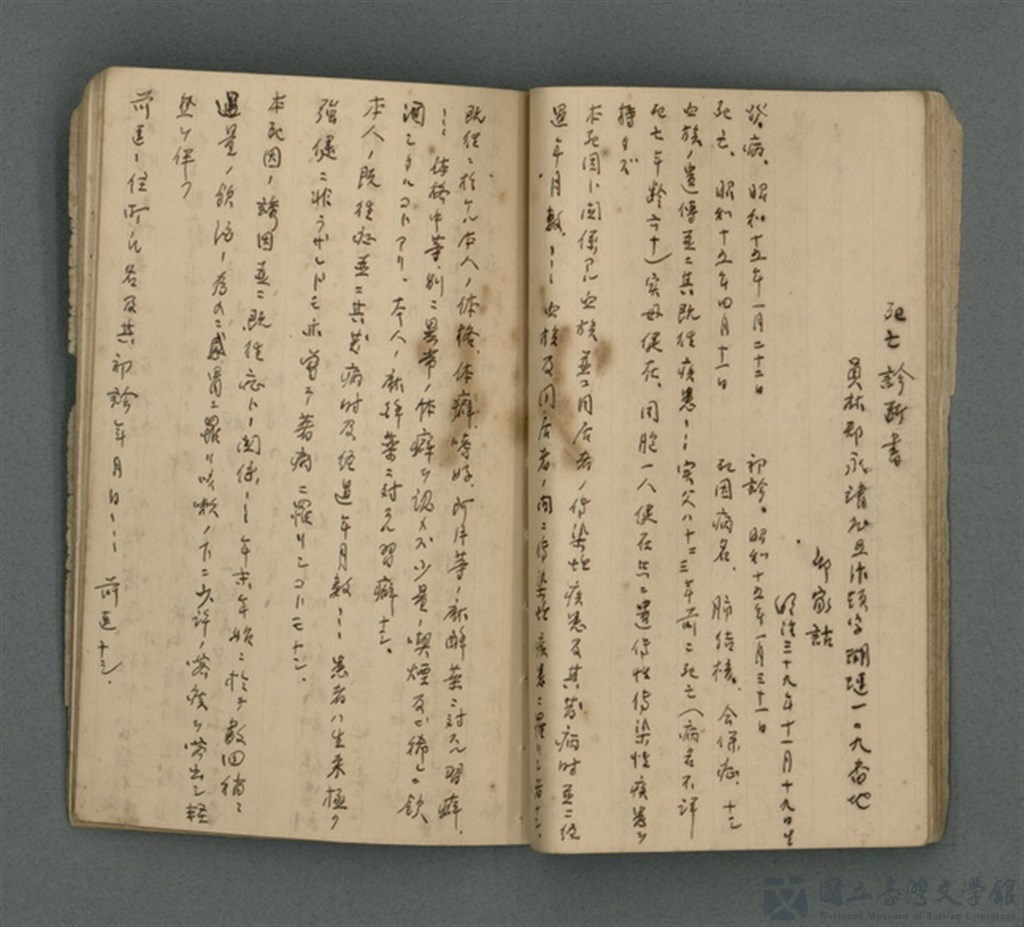 死亡診断書
員林郡永靖庄五汴頭字湖璉一〇九番地
邱家詰
明治三十九年十一月十九日生
発病、昭和十五年一月二十二日 初診、昭和十五年一月三十一日
死亡、昭和十五年四月十一日 死因病名、肺結核、合併症、ナシ
血族ノ遺傳並ニ其既往疾患… 実父ハ十二三年前ニ死亡(病名不詳
死亡年齢六十)実母健在、同胞一人健在共ニ遺傳性傳染性疾患ヲ
持タズ
本死因ト関係アル血族並ニ同居者ノ傳染性疾患及其発病時並ニ経
過年月数、… 血族及同居者ノ内ニ傳染性疾患ニ罹リシ者ナシ、
既往ニ於ケル本人ノ体格、体癖、嗜好、所作等ノ麻酔薬ニ対スル習癖、
… 体格中等、別ニ異常ノ体癖ヲ認メズ少量ノ喫煙及ビ稀レニ飲
酒シタルコトアリ、本人ノ麻酔薬ニ対スル習癖ナシ、
本人ノ既往症並ニ其発病時及経過年月数… 患者ハ生来極ク
強健ニ非ラザレドモ亦曾テ著病ニ罹リシコトモナシ、
本死因ノ誘因並ニ既往症トノ関係、… 年末年始ニ於テ数回稍々
過量ノ飲酒ノ為メニ感冒ニ罹リ咳嗽ノ下ニ少許ノ喀痰ヲ喀出シ軽
熱ヲ伴フ
前医ノ住所氏名及其初診年月日… 前医ナシ、
國立臺灣文學館
National Museum of Taiwan Literature